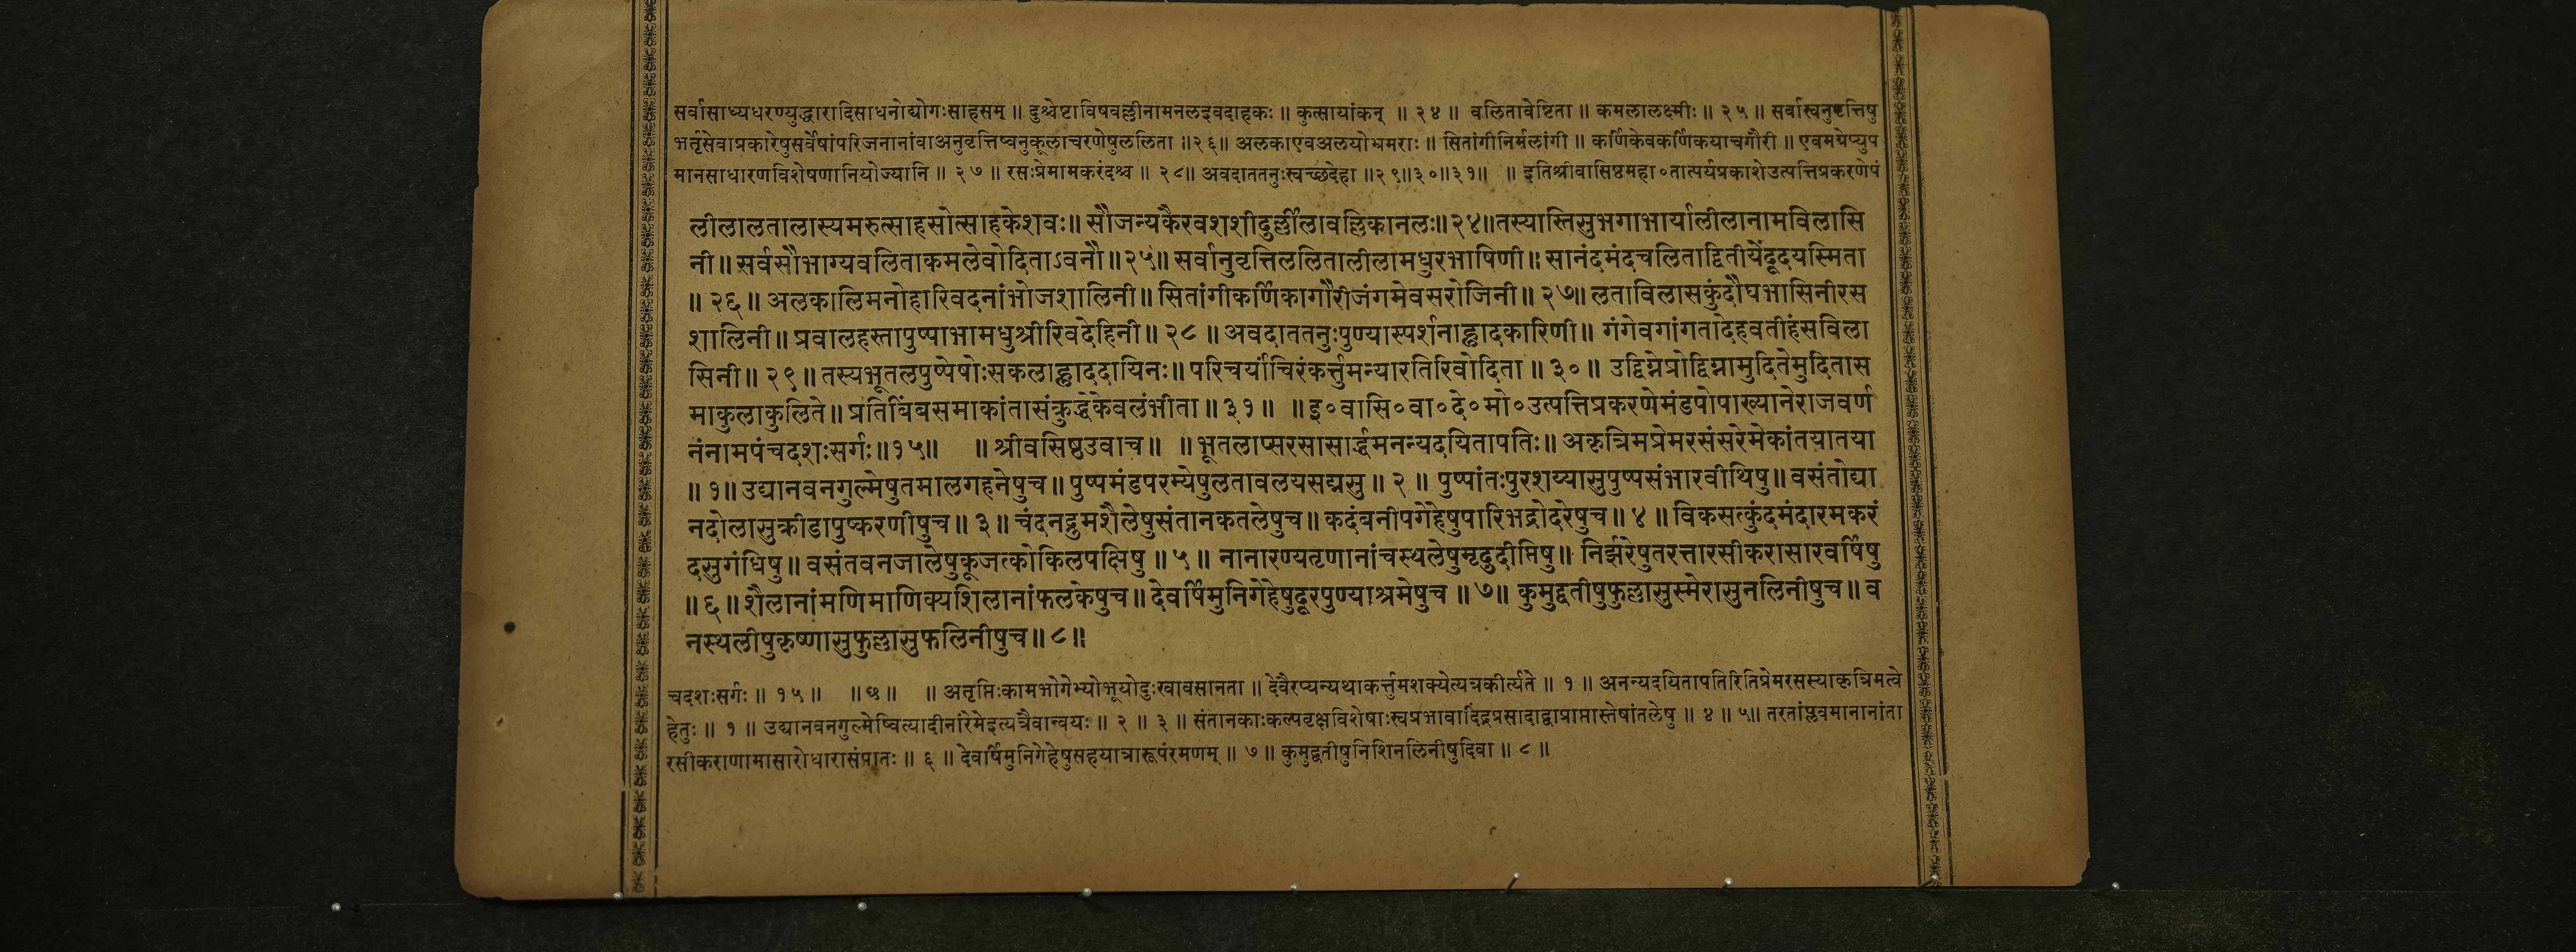 सर्वासाध्यधरण्युद्धारादिसाधनोद्योगःसाहसम् ॥ दुश्चेष्टाविषवल्लीनामनलइवदाहकः ॥ कुत्सायांकन् ॥ २४ ॥ वलितावेष्टिता ॥ कमलालक्ष्मीः ॥ २५ ॥ सर्वास्वनुवृत्तिषु
भर्तृसेवाप्रकारेषुसर्वेषांपरिजनानांवाअनुवृत्तिष्वनुकूलाचरणेषुललिता ॥२६॥ अलकाएवअलयोभ्रमराः ॥ सितांगीनिर्मलांगी ॥ कर्णिकेवकर्णिकयाचगौरी ॥ एवमग्रेप्युप
मानसाधारणविशेषणानियोज्यानि ॥ २७ ॥ रसःप्रेमामकरंदश्च ॥ २८॥ अवदाततनुःस्वच्छदेहा ॥२९॥३०॥३१॥ ॥ इतिश्रीवासिष्ठमहा०तात्पर्यप्रकाशेउत्पत्तिप्रकरणेपं
लीलालतालास्यमरुत्साहसोत्साहकेशवः॥ सौजन्यकैरवशशीदुर्लीलावल्लिकानलः॥२४॥तस्यास्तिसुभगाभार्यालीलानामविलासि
नी॥ सर्वसौभाग्यवलिताकमलेवोदिताऽवनौ॥२५॥ सर्वानुवृत्तिललितालीलामधुरभाषिणी॥ सानंदमंदचलिताद्वितीयेंदूदयस्मिता
॥ २६ ॥ अलकालिमनोहारिवदनांभोजशालिनी॥ सितांगीकर्णिकागौरीजंगमेवसरोजिनी॥ २७॥ लताविलासकुंदौघभासिनीरस
शालिनी॥ प्रवालहस्तापुष्पाभामधुश्रीरिवदेहिनी॥ २८ ॥ अवदाततनुःपुण्यास्पर्शनाह्लादकारिणी॥ गंगेवगांगतादेहवतीहंसविला
सिनी॥ २९॥ तस्यभूतलपुष्पेषोःसकलाह्लाददायिनः॥ परिचर्यांचिरंकर्त्तुमन्यारतिरिवोदिता ॥ ३०॥ उद्विग्नेप्रोद्विग्नामुदितेमुदितास
माकुलाकुलिते॥ प्रतिबिंबसमाकांतासंक्रुद्धेकेवलंभीता॥३१॥ ॥इ०वासि०वा०दे०मो०उत्पत्तिप्रकरणेमंडपोपाख्यानेराजवर्ण
नंनामपंचदशःसर्गः॥१५॥ ॥श्रीवसिष्ठउवाच॥ ॥भूतलाप्सरसासार्द्धमनन्यदयितापतिः॥ अकृत्रिमप्रेमरसंसरेमेकांतयातया
॥ १॥ उद्यानवनगुल्मेषुतमालगहनेषुच॥ पुष्पमंडपरम्येषुलतावलयसद्मसु॥ २ ॥ पुष्पांतःपुरशय्यासुपुष्पसंभारवीथिषु॥ वसंतोद्या
नदोलासुक्रीडापुष्करणीषुच॥ ३॥ चंदनद्रुमशैलेषुसंतानकतलेषुच॥ कदंबनीपगेहेषुपारिभद्रोदरेषुच॥४ ॥ विकसत्कुंदमंदारमकरं
दसुगंधिषु॥ वसंतवनजालेषुकूजत्कोकिलपक्षिषु ॥ ५ ॥ नानारण्यतृणानांचस्थलेषुमृदुदीप्तिषु॥ निर्झरेषुतरत्तारसीकरासारवर्षिषु
॥६॥शैलानांमणिमाणिक्यशिलानांफलकेषुच॥देवर्षिमुनिगेहेषुदूरपुण्याश्रमेषुच ॥ ७॥ कुमुद्वतीषुफुल्लासुस्मेरासुनलिनीषुच॥ व
नस्थलीषुकृष्णासुफुल्लासुफलिनीषुच॥८॥
चदशःसर्गः ॥ १५ ॥ ॥ ७ ॥ ॥ अतृप्तिःकामभोगेभ्योभूयोदुःखावसानता ॥ देवैरप्यन्यथाकर्त्तुमशक्येत्यत्रकीर्त्यते ॥ १ ॥ अनन्यदयितापतिरितिप्रेमरसस्याकृत्रिमत्वे
हेतुः ॥ १ ॥ उद्यानवनगुल्मेष्वित्यादीनांरेमेइत्यत्रैवान्वयः ॥ २ ॥ ३ ॥ संतानकाःकल्पवृक्षविशेषाःस्वप्रभावादिंद्रप्रसादाद्वाप्राप्तास्तेषांतलेषु ॥ ४ ॥ ५॥ तरतांप्लवमानानांता
रसीकराणामासारोधारासंपातः ॥ ६ ॥ देवर्षिमुनिगेहेषुसहयात्रारूपंरमणम् ॥ ७ ॥ कुमुद्वतीषुनिशिनलिनीषुदिवा ॥ ८ ॥